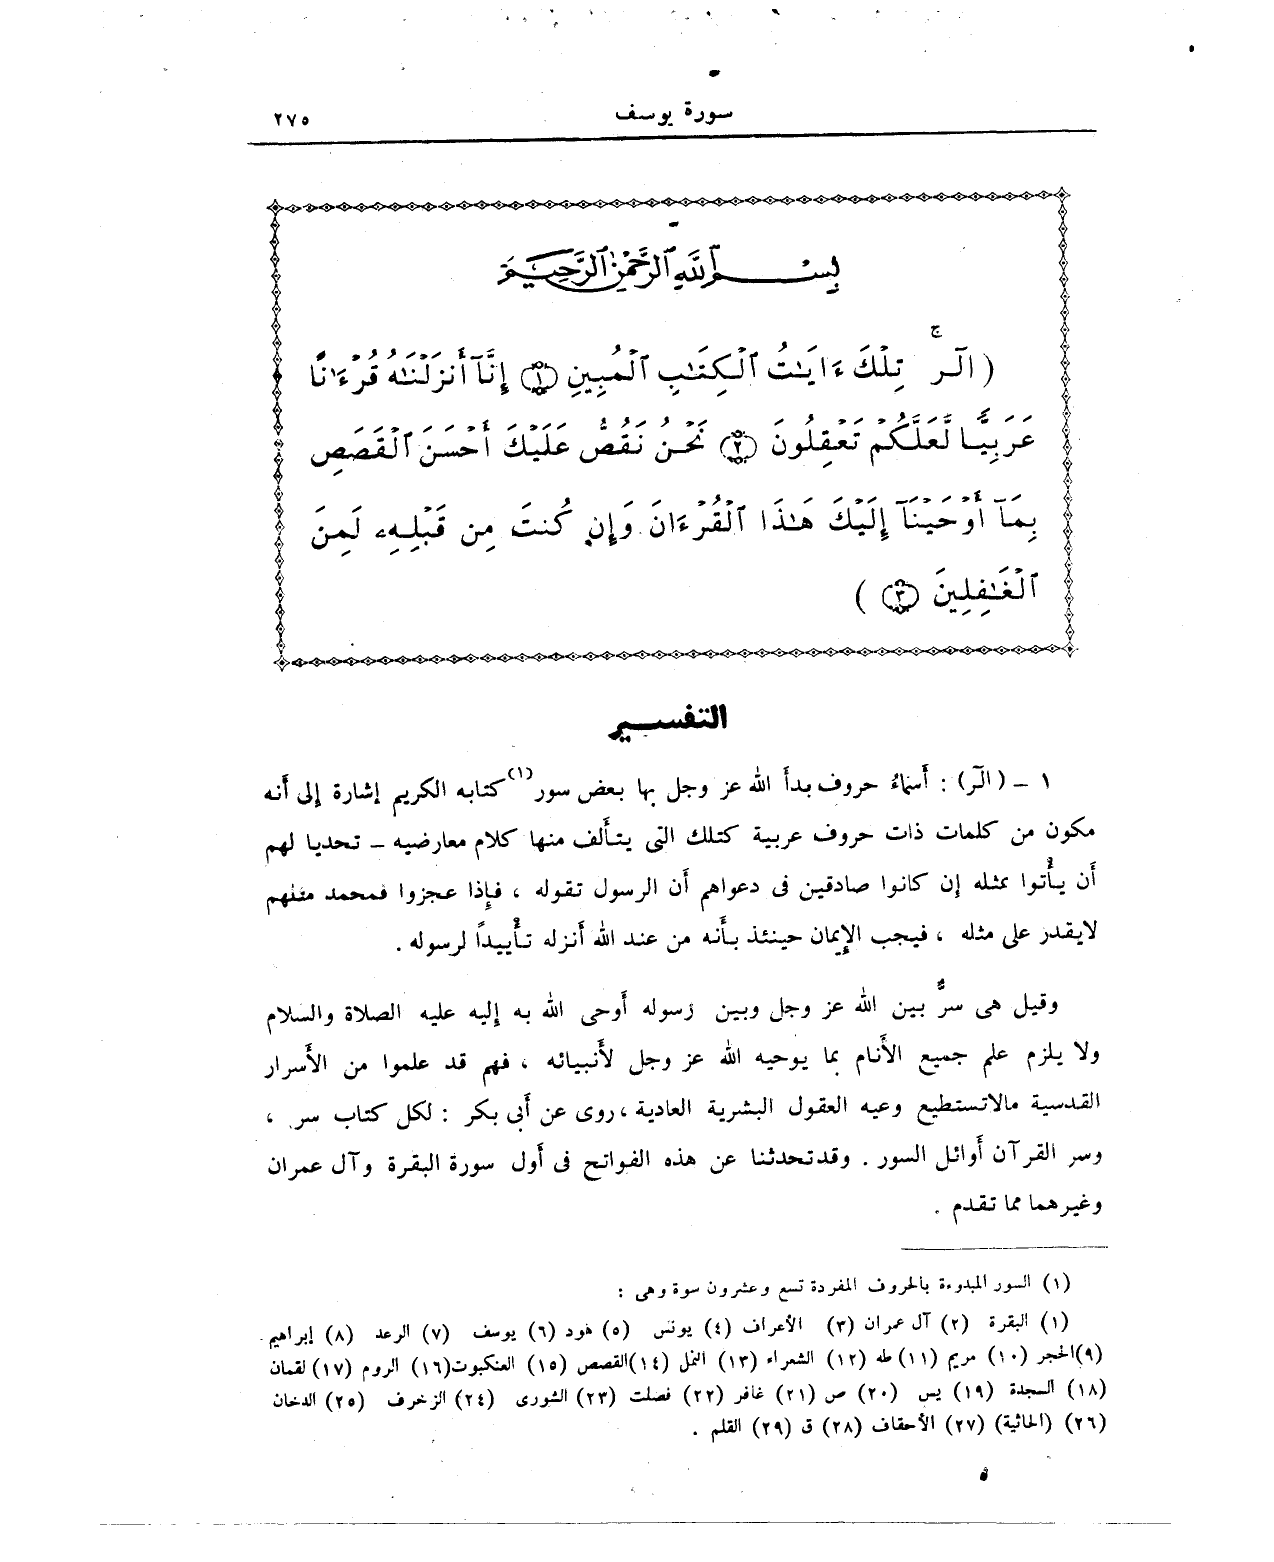 سورة يوسف ٢٧٥
بِسْمِ ٱللَّهِ ٱلرَّحْمَٰنِ ٱلرَّحِيمِ
( الٓرۚ تِلْكَ ءَايَٰتُ ٱلْكِتَٰبِ ٱلْمُبِينِ ١ إِنَّآ أَنزَلْنَٰهُ قُرْءَٰنًا
عَرَبِيًّا لَّعَلَّكُمْ تَعْقِلُونَ ٢ نَحْنُ نَقُصُّ عَلَيْكَ أَحْسَنَ ٱلْقَصَصِ
بِمَآ أَوْحَيْنَآ إِلَيْكَ هَٰذَا ٱلْقُرْءَانَ وَإِن كُنتَ مِن قَبْلِهِۦ لَمِنَ
ٱلْغَٰفِلِينَ ٣ )
التفسير
١ – (الٓرَ) : أَسماءُ حروف بدأَ الله عز وجل بها بعض سور(١) كتابه الكريم إشارة إلى أنه
مكون من كلمات ذات حروف عربية كتلك التى يتأَلف منها كلام معارضيه – تحديا لهم
أن يأْتوا بمثله إن كانوا صادقين فى دعواهم أن الرسول تقوله ، فإِذا عجزوا فمحمد مثلهم
لايقدر على مثله ، فيجب الإِيمان حينئذ بأَنه من عند الله أنزله تأْييداً لرسوله .
وقيل هى سرٌّ بين الله عز وجل وبين رسوله أوحى الله به إليه عليه الصلاة والسلام
ولا يلزم علم جميع الأَنام بما يوحيه الله عز وجل لأَنبيائه ، فهم قد علموا من الأَسرار
القدسية مالاتستطيع وعيه العقول البشرية العادية ، روى عن أَبى بكر : لكل كتاب سر ،
وسر القرآن أَوائل السور . وقدتحدثنا عن هذه الفواتح فى أول سورة البقرة وآل عمران
وغيرهما مما تقدم .
(١) السور المبدوءة بالحروف المفردة تسع وعشرون سوة وهى :
(١) البقرة (٢) آل عمران (٣) الأعراف (٤) يونس (٥) هود (٦) يوسف (٧) الرعد (٨) إبراهيم
(٩)الحجر (١٠) مريم (١١) طه (١٢) الشعراء (١٣) النمل (١٤)القصص (١٥) العنكبوت(١٦) الروم (١٧) لقمان
(١٨) السجدة (١٩) يس (٢٠) ص (٢١) غافر (٢٢) فصلت (٢٣) الشورى (٢٤) الزخرف (٢٥) الدخان
(٢٦) (الجاثية) (٢٧) الأحقاف (٢٨) ق (٢٩) القلم .